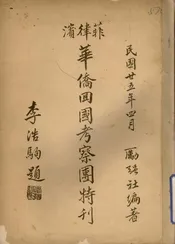 民國廿五年四月　勵志社編著
菲律濱
華僑回國考察團特刊
李浩駒題